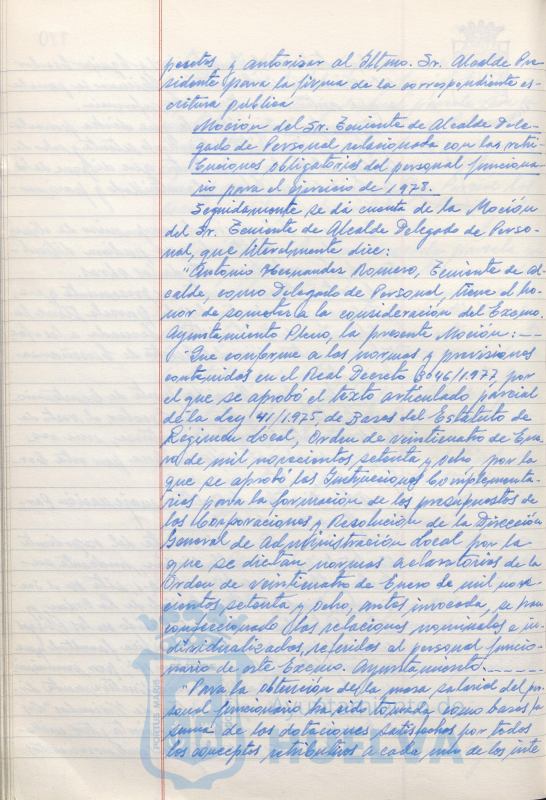 pesetas, y autorizar al Iltmo. Sr. Alcalde Pre-
sidente para la firma de la correspondiente es-
critura publica
Moción del Sr. Teniente de Alcalde Dele-
gado de Personal relacionada con las retri-
buciones obligatorias del personal funciona-
rio para el ejercicio de 1978.
Seguidamente se dá cuenta de la Moción
del Sr. Teniente de Alcalde Delegado de Perso-
nal, que literalmente dice:
"Antonio Hernandez Romero, Teniente de Al-
calde, como Delegado de Personal, tiene el ho-
nor de someter a la consideración del Excmo.
Ayuntamiento Pleno, la presente Moción:
"Que conforme a las normas y previsiones
contenidas en el Real Decreto 3046/1977 por
el que se aprobó el texto articulado parcial
de la Ley 41/1.975, de Bases del Estatuto de
Régimen Local, Orden de veinticuatro de Ene-
ro de mil novecientos setenta y ocho por la
que se aprobó las Instrucciones Complementa-
rias para la formación de los presupuestos de
las Corporaciones y Resolución de la Dirección
General de Administración Local por la
que se dictan normas aclaratorias de la
Orden de veinticuatro de Enero de mil nove
cientos setenta y ocho, antes invocada, se han
confeccionado las relaciones nominales e in-
dividualizadas, referidas al personal funcio-
nario de este Excmo. Ayuntamiento.
"Para la obtención de la masa salarial del per
sonal funcionario ha sido tomada como bases la
suma de las dotaciones satisfechas por todos
los conceptos retributivos a cada uno de los inte
PORTUS MARIS
Ayuntamiento de
HUELVA